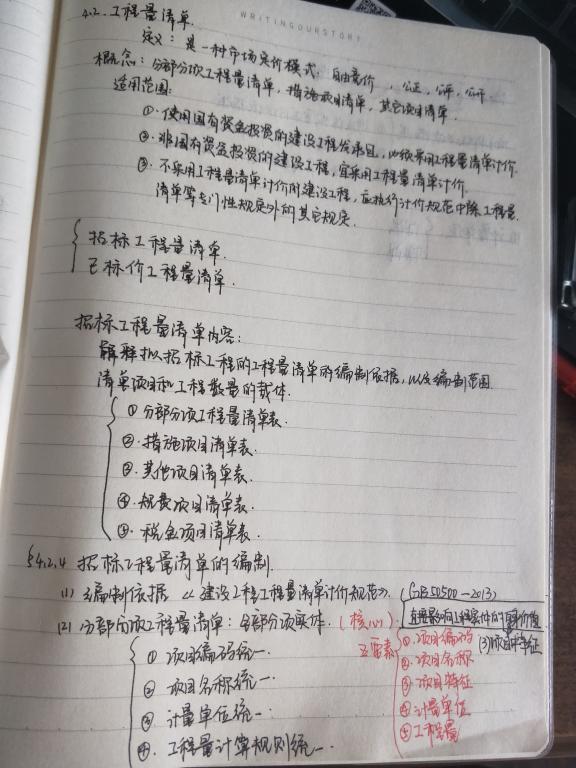 WRITINGOURSTORY
4.2. 工程量清单.
定义: 是一种市场定价模式. 自由竞价, 公正, 公平, 公开
概念: 分部分项工程量清单, 措施项目清单, 其它项目清单.
适用范围:
①. 使用国有资金投资的建设工程发承包, 必须采用工程量清单计价.
②. 非国有资金投资的建设工程, 宜采用工程量清单计价.
③. 不采用工程量清单计价的建设工程, 应执行计价规范中除工程量
清单等专门性规定外的其它规定.
招标工程量清单.
已标价工程量清单.
招标工程量清单内容:
解释拟招标工程的工程量清单的编制依据, 以及编制范围
清单项目和工程数量的载体.
① 分部分项工程量清单表.
②. 措施项目清单表.
③. 其他项目清单表.
④. 规费项目清单表.
⑤. 税金项目清单表.
§4.2.4 招标工程量清单的编制.
(1) 编制依据 《建设工程工程量清单计价规范》. (GB50500-2013)
(2) 分部分项工程量清单: 全部分项实体. (核心)
五要素
① 项目编码
② 项目名称
③ 项目特征
④ 计量单位
⑤ 工程量
(3)项目特征
① 项目编码统一.
② 项目名称统一.
③. 计量单位统一.
④. 工程量计算规则统一.